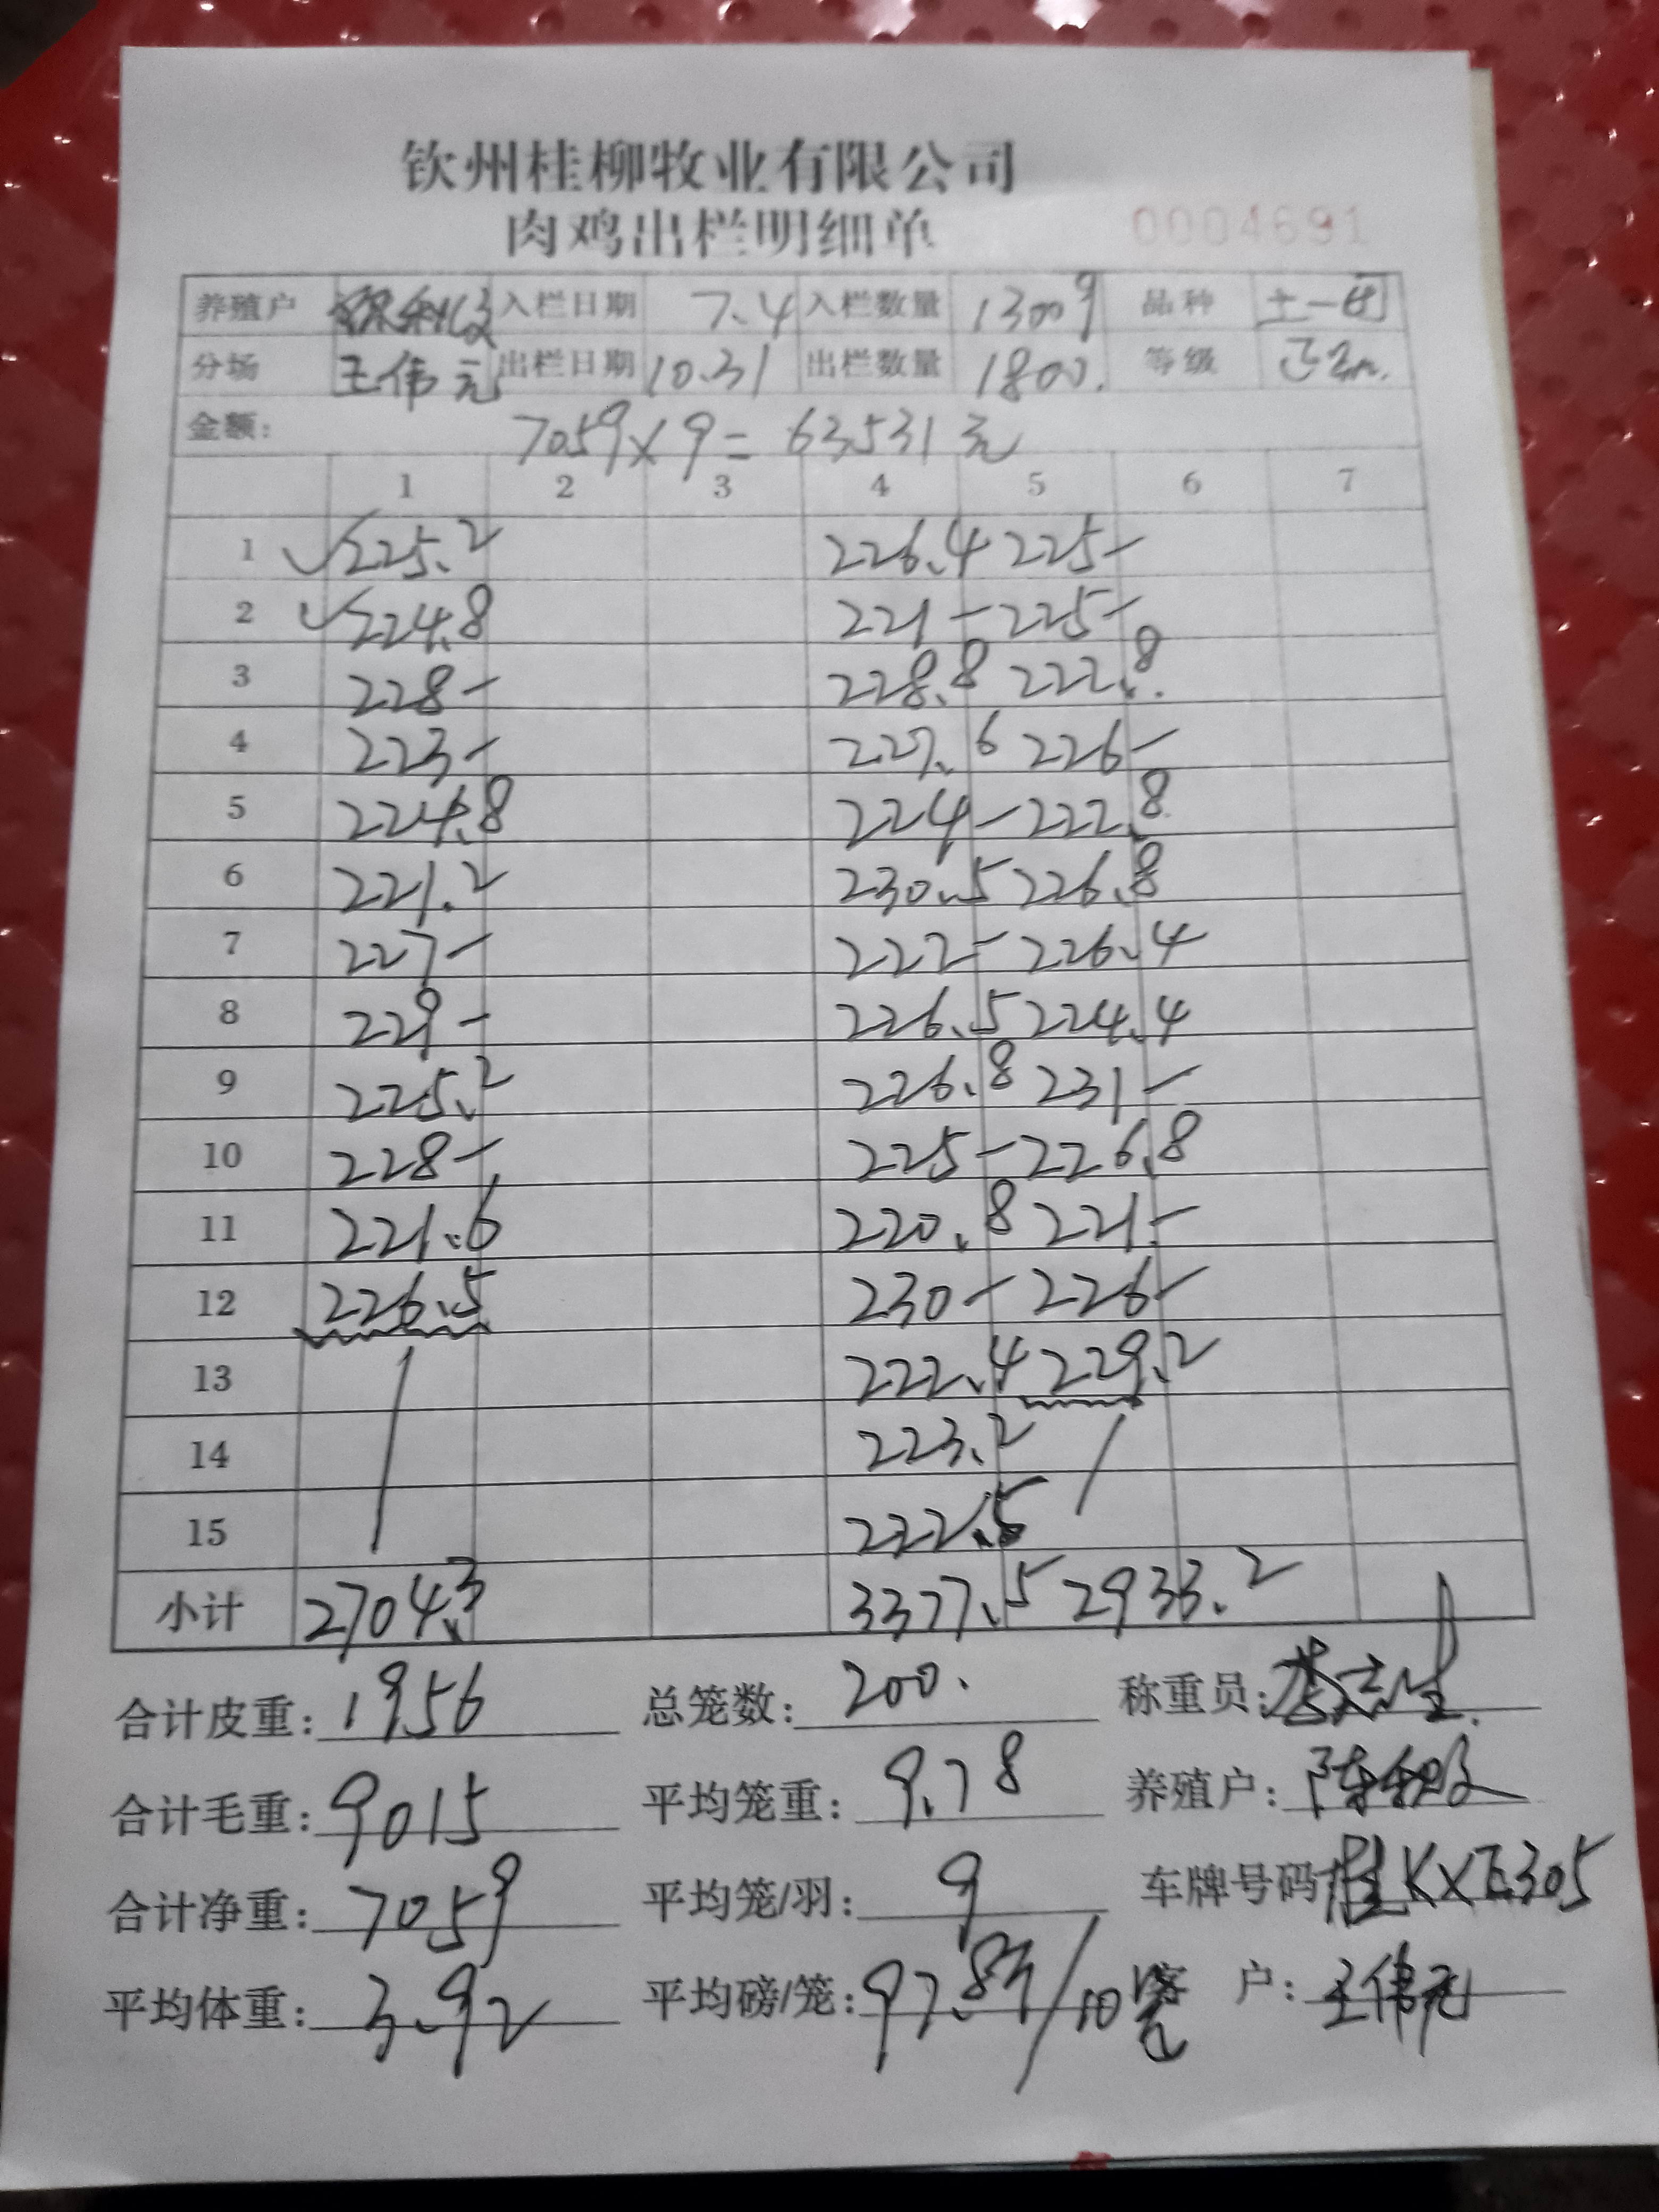 钦州桂柳牧业有限公司
肉鸡出栏明细单 0004691
养殖户 入栏日期 7.4 入栏数量 13009 品种 土一
分场 王伟元 出栏日期 10.31 出栏数量 1800. 等级 正
金额: 7059×9=63531元
1 2 3 4 5 6 7
1 ✓225.2 226.4 225-
2 ✓224.8 221- 225-
3 228- 228.8 222.8
4 223- 227.6 226-
5 224.8 224- 222.8
6 221.2 230.5 226.8
7 227- 222- 226.4
8 229- 226.5 224.4
9 225.2 226.8 231-
10 228- 225- 226.8
11 221.6 220.8 221-
12 226.5 230- 226-
13 222.4 229.2
14 223.2
15 222.5
小计 2704.3 3377.5 2933.2
合计皮重: 1956 总笼数: 200. 称重员:
合计毛重: 9015 平均笼重: 9.78 养殖户: 陈
合计净重: 7059 平均笼/羽: 9 车牌号码 桂KXE305
平均体重: 3.92 平均磅/笼: 97.83/10笼 客 户: 王伟元